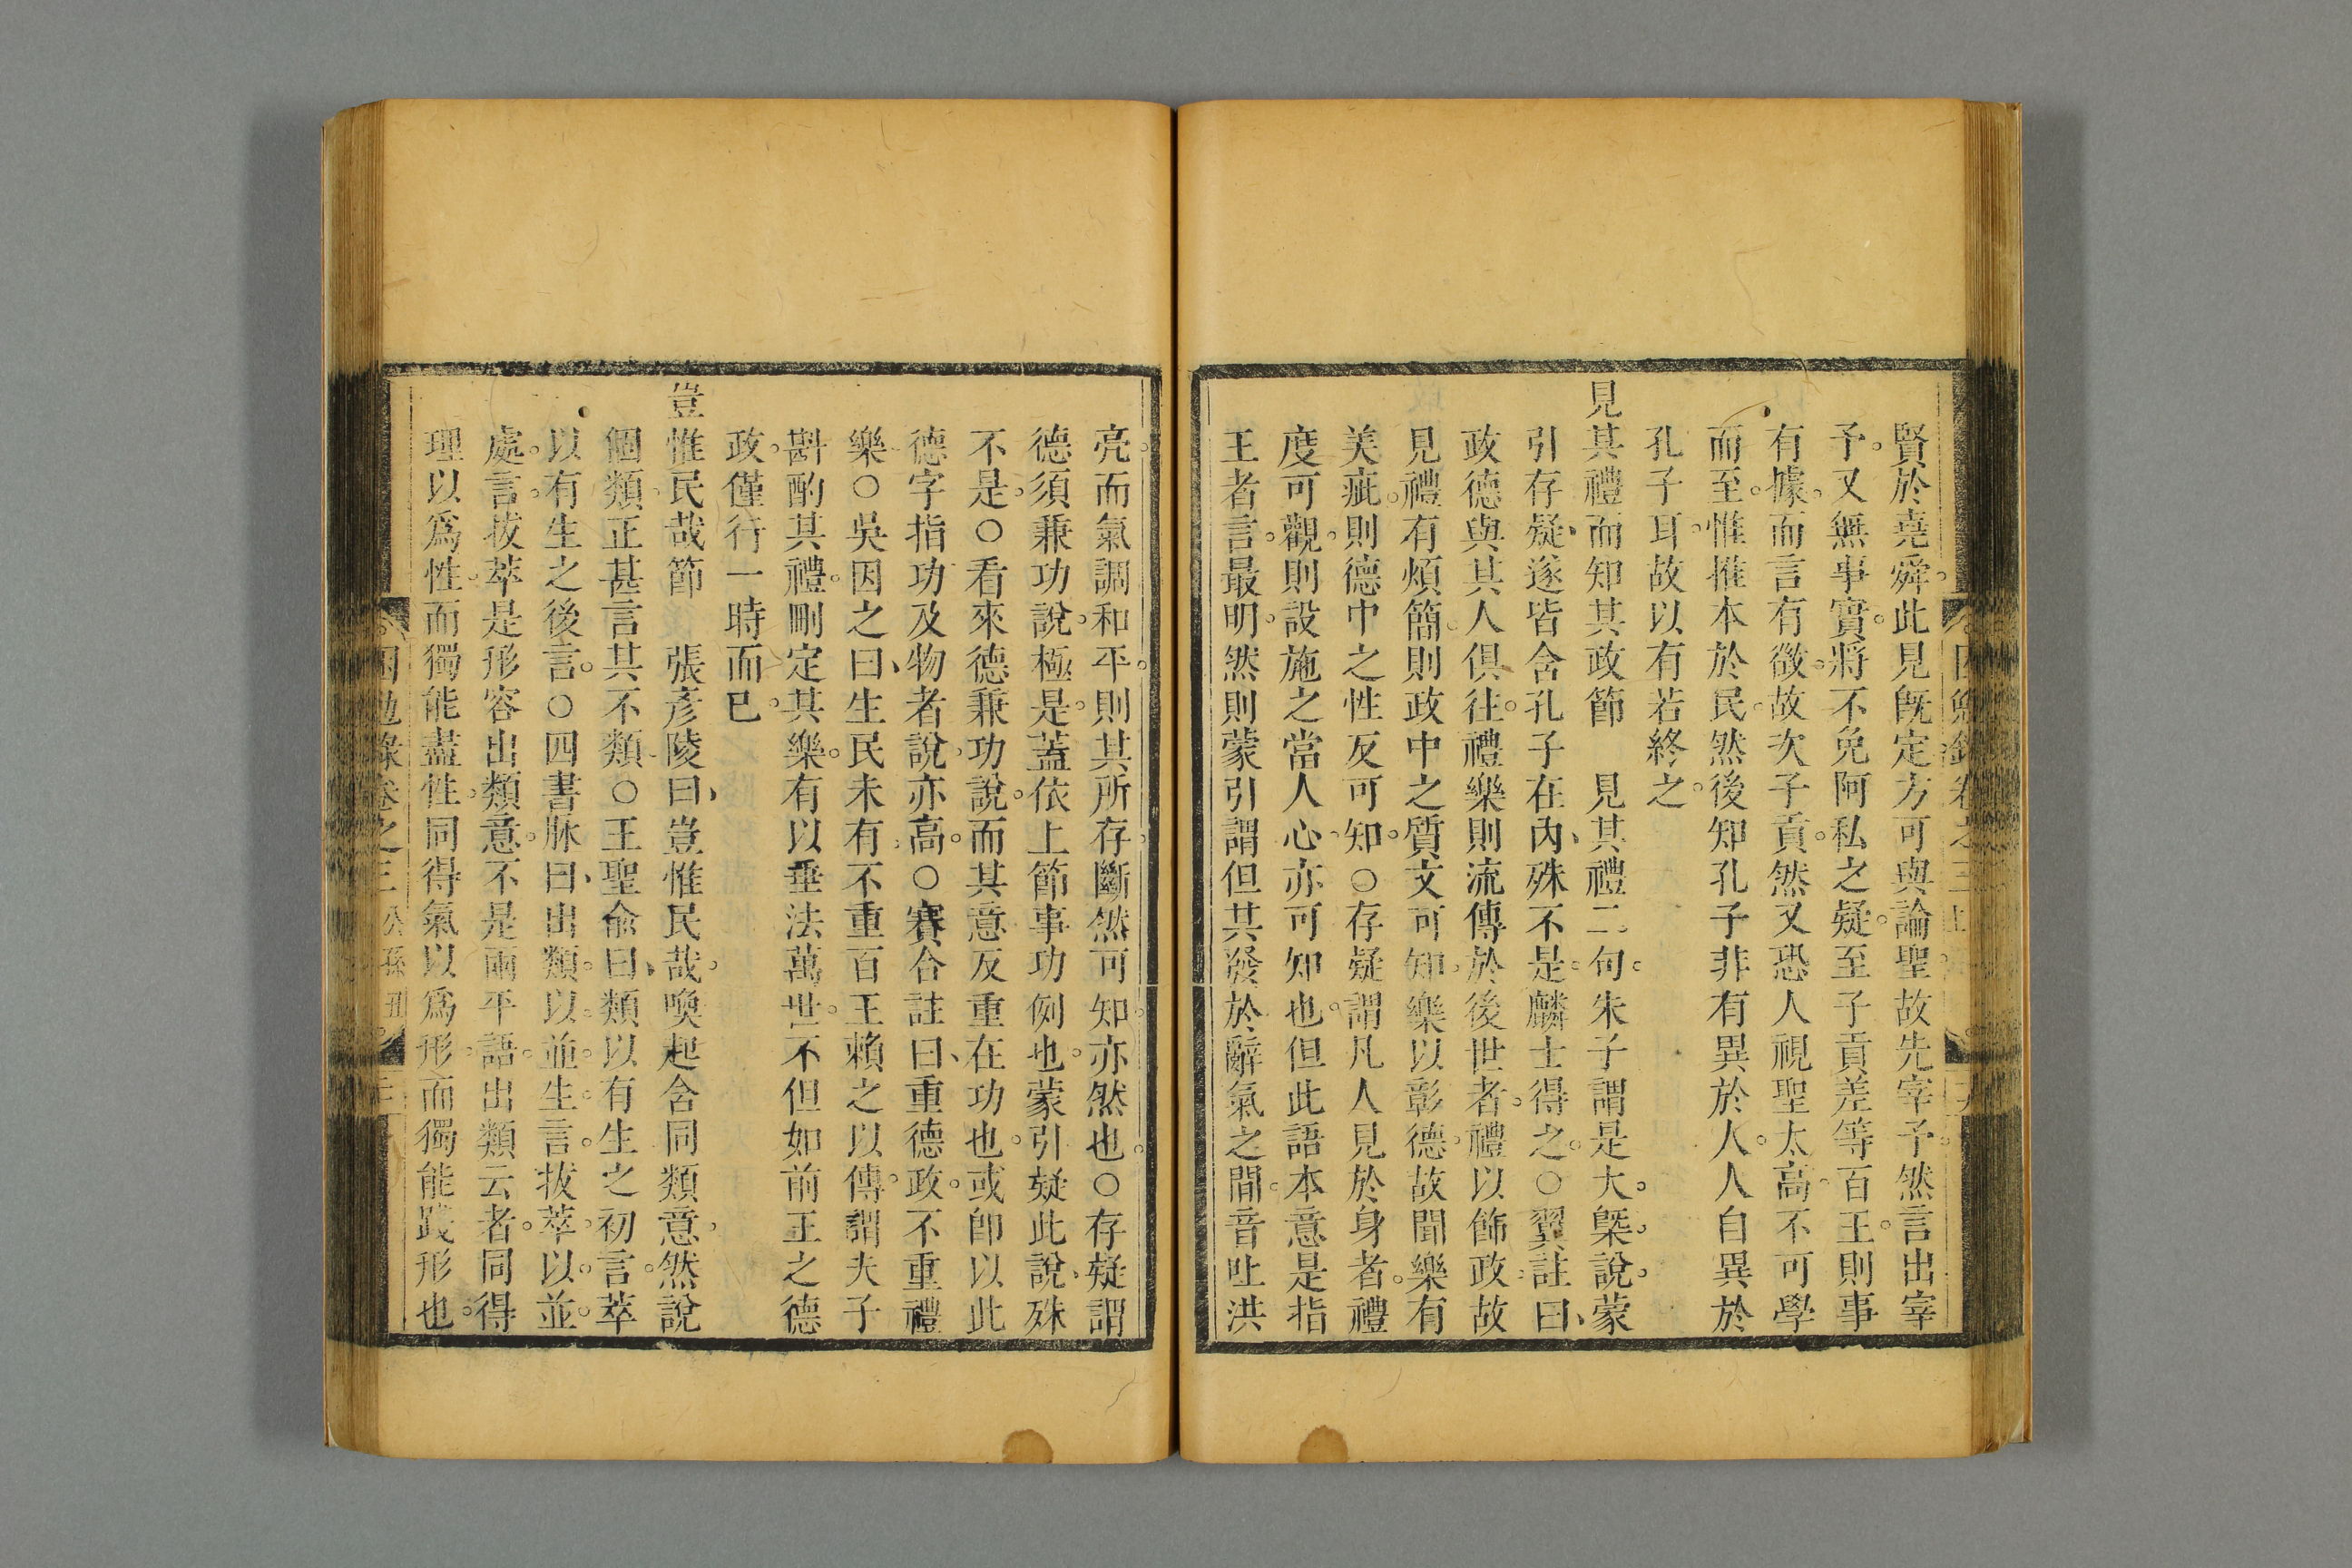 賢於堯舜此見旣定方可與論聖故先宰予然言出宰
予又無事實將不免阿私之疑至子貢差等百王則事
有據而言有徵故次子貢然又恐人視聖太高不可學
而至惟推本於民然後知孔子非有異於人人自異於
孔子耳故以有若終之
見其禮而知其政節　見其禮二句朱子謂是大槩說蒙
引存疑遂皆舍孔子在內殊不是麟士得之○翼註曰
政德與其人俱往禮樂則流傳於後世者禮以飾政故
見禮有煩簡則政中之質文可知樂以彰德故聞樂有
美疵則德中之性反可知○存疑謂凡人見於身者禮
度可觀則設施之當人心亦可知也但此語本意是指
王者言最明然則蒙引謂但其發於辭氣之間音吐洪
亮而氣調和平則其所存斷然可知亦然也○存疑謂
德須兼功說極是蓋依上節事功例也蒙引疑此說殊
不是○看來德兼功說而其意反重在功也或卽以此
德字指功及物者說亦高○賽合註曰重德政不重禮
樂○吳因之曰生民未有不重百王賴之以傳謂夫子
斟酌其禮刪定其樂有以垂法萬世不但如前王之德
政僅行一時而已
豈惟民哉節　張彥陵曰豈惟民哉喚起含同類意然說
個類正甚言其不類○王聖俞曰類以有生之初言萃
以有生之後言○四書脉曰出類以並生言拔萃以並
處言拔萃是形容出類意不是兩平語出類云者同得
理以爲性而獨能盡性同得氣以爲形而獨能踐形也
困勉錄卷之三　公孫丑